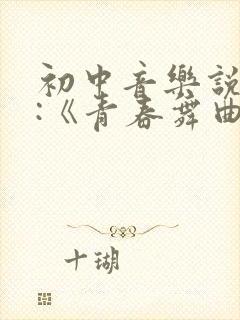 初中音樂説
:《青春舞曲
十瑚